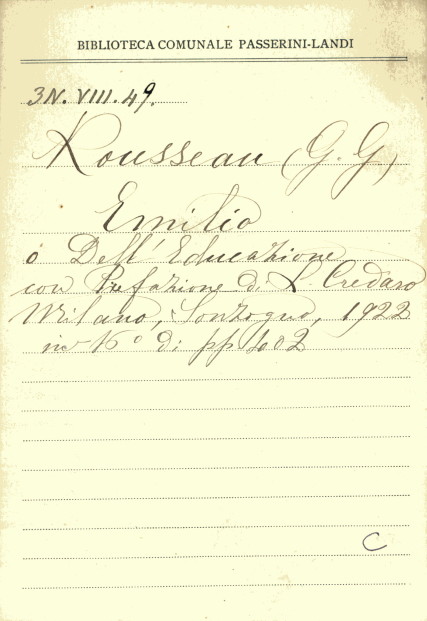 BIBLIOTECA COMUNALE PASSERINI-LANDI
3N. VIII. 49.
Rousseau (G. G)
Emilio
o Dell'Educazione
con Prefazione di L. Credaro
Milano, Sonzogno, 1922
in 16° di pp 402
C